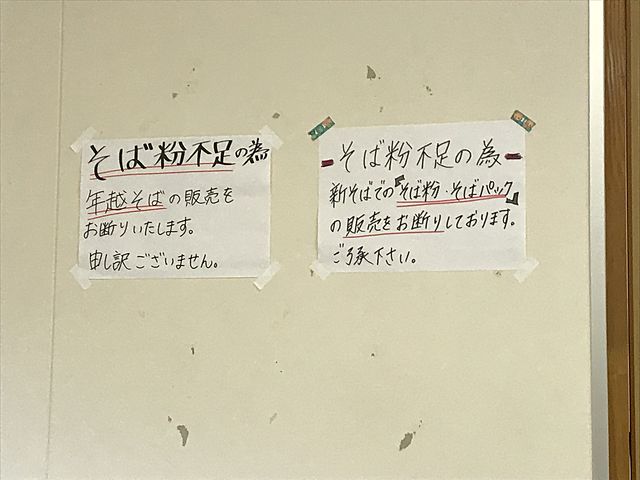 そば粉不足の為
年越そばの販売を
お断りいたします。
申し訳ございません。
そば粉不足の為
新そばでの『そば粉・そばパック』
の販売をお断りしております。
ご了承下さい。